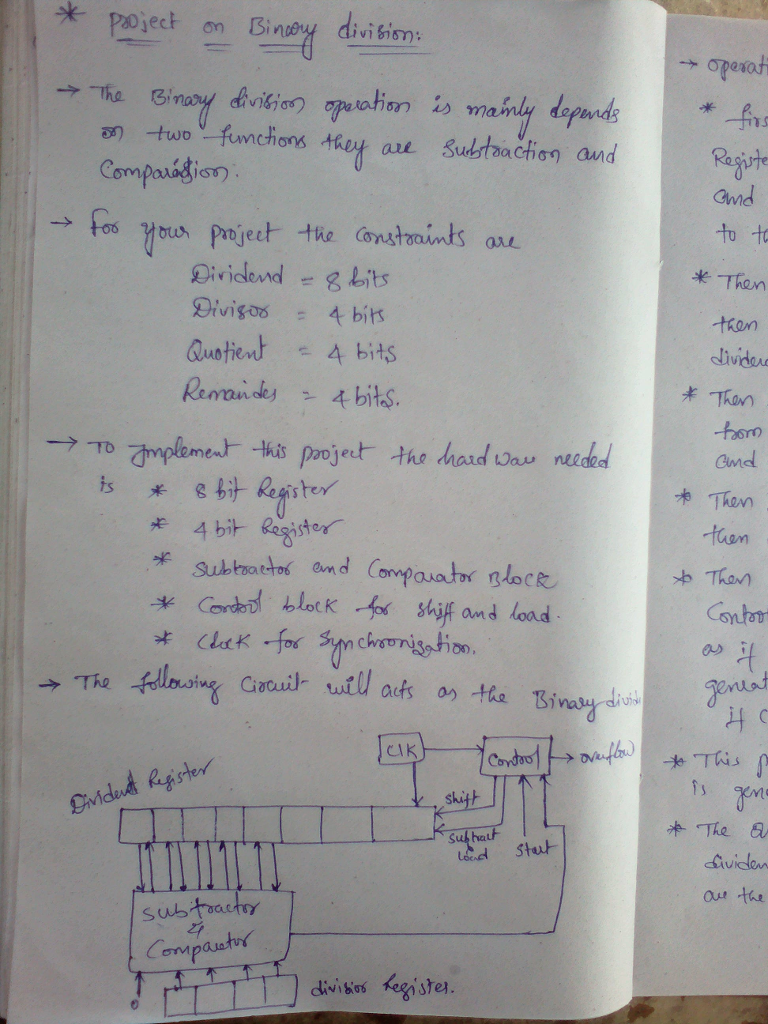 * Project on Binary division:
→ The Binary division operation is mainly depends
on two functions they are Subtraction and
Comparision.
→ For your project the constraints are
Dividend = 8 bits
Divisor = 4 bits
Quotient = 4 bits
Remainder = 4 bits.
→ To Implement this project the hard ware needed
is * 8 bit Register
* 4 bit Register
* Subtractor and Comparator Block
* Control block for shift and load.
* Clock for Synchronization.
→ The following Circuit will acts as the Binary divid
Dividend Register
Clk
Control
overflow
Shift
Subtract
Load
Start
Subtractor
&
Comparator
0
division Register.
→ operati
* firs
Registe
and
to th
* Then
then
divide
* Then
from
and
* Then
then
* Then
Control
as if
genrat
if c
* This p
is gene
* The Qu
dividen
are the